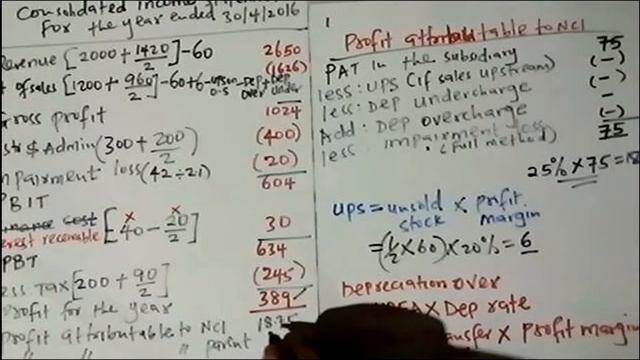 Consolidated Income
For the year ended 30/4/2016
Revenue [2000 + 1420/2] - 60 2650
of sales [1200 + 960/2] - 60 + 6 (1626)
Gross profit 1024
& Admin (300 + 200/2) (400)
Impairment loss (42 ÷ 21) (20)
PBIT 604
Interest receivable [40 - 20/2] 30
PBT 634
Less Tax [200 + 90/2] (245)
Profit for the year 389
Profit attributable to NCI 18.75
" " parent
1
Profit attributable to NCI
PAT in the subsidiary 75
less: UPS (if sales upstream) (-)
less: DEP undercharge (-)
Add: DEP overcharge -
less impairment loss (-)
(full method) 75
25% x 75 =
UPS = unsold stock x profit margin
= (1/2 x 60) x 20% = 6
Depreciation over
x Dep rate
transfer x Profit margin